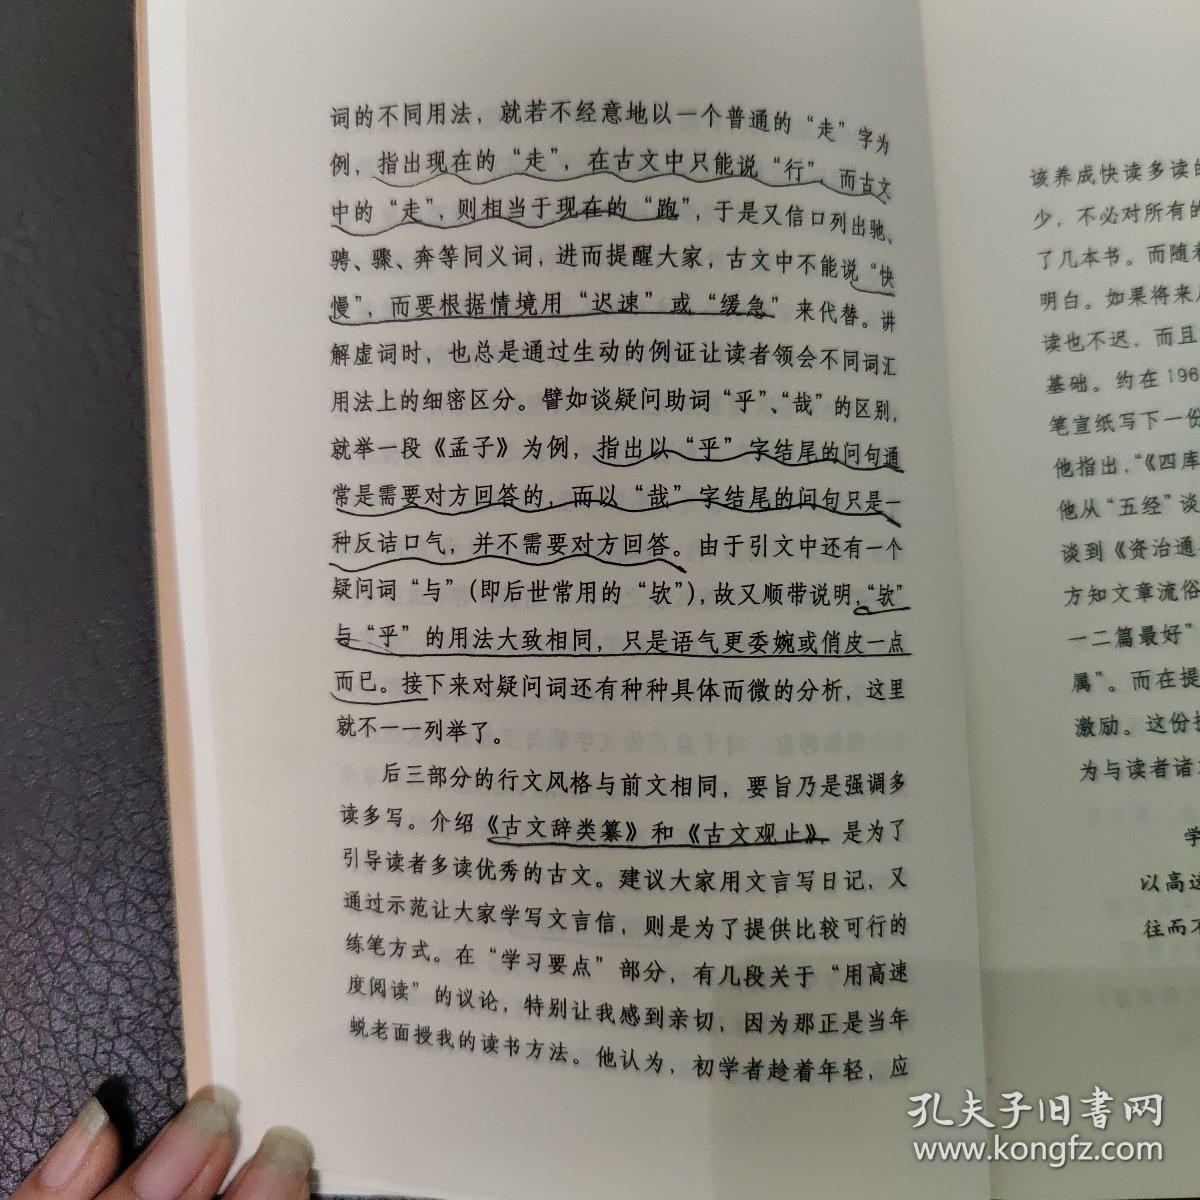 词的不同用法，就若不经意地以一个普通的“走”字为
例，指出现在的“走”，在古文中只能说“行”，而古文
中的“走”，则相当于现在的“跑”，于是又信口列出驰、
骋、骤、奔等同义词，进而提醒大家，古文中不能说“快
慢”，而要根据情境用“迟速”或“缓急”来代替。讲
解虚词时，也总是通过生动的例证让读者领会不同词汇
用法上的细密区分。譬如谈疑问助词“乎”、“哉”的区别，
就举一段《孟子》为例，指出以“乎”字结尾的问句通
常是需要对方回答的，而以“哉”字结尾的问句只是一
种反诘口气，并不需要对方回答。由于引文中还有一个
疑问词“与”（即后世常用的“欤”），故又顺带说明，“欤”
与“乎”的用法大致相同，只是语气更委婉或俏皮一点
而已。接下来对疑问词还有种种具体而微的分析，这里
就不一一列举了。
后三部分的行文风格与前文相同，要旨乃是强调多
读多写。介绍《古文辞类纂》和《古文观止》是为了
引导读者多读优秀的古文。建议大家用文言写日记，又
通过示范让大家学写文言信，则是为了提供比较可行的
练笔方式。在“学习要点”部分，有几段关于“用高速
度阅读”的议论，特别让我感到亲切，因为那正是当年
蜕老面授我的读书方法。他认为，初学者趁着年轻，应
该养成快读多读的
少，不必对所有的
了几本书。而随着
明白。如果将来
读也不迟，而且
基础。约在196
笔宣纸写下一份
他指出，“《四库
他从“五经”谈
谈到《资治通
方知文章流俗
一二篇最好”
属”。而在提
激励。这份
为与读者诸
学
以高速
往而不
孔夫子旧書网
www.kongfz.com